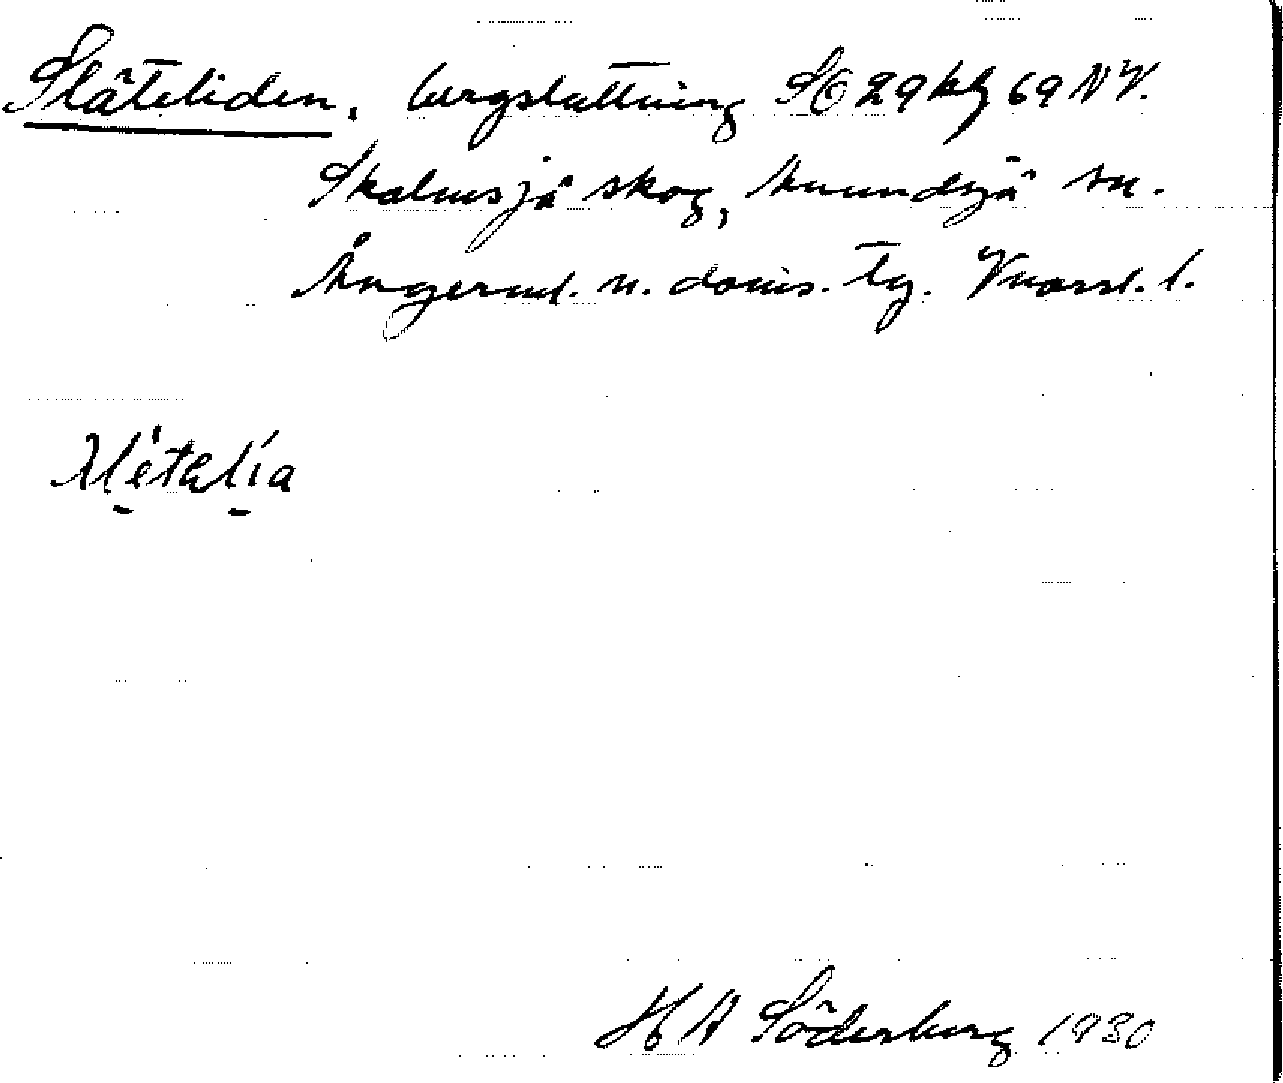 Släteliden, bergsluttning SO 29 kbl 69 NV.
Skalmsjö skog, Anundsjö sn.
Ångerml. n. doms. tg. Vnorrl. l.
H A Söderberg 1930